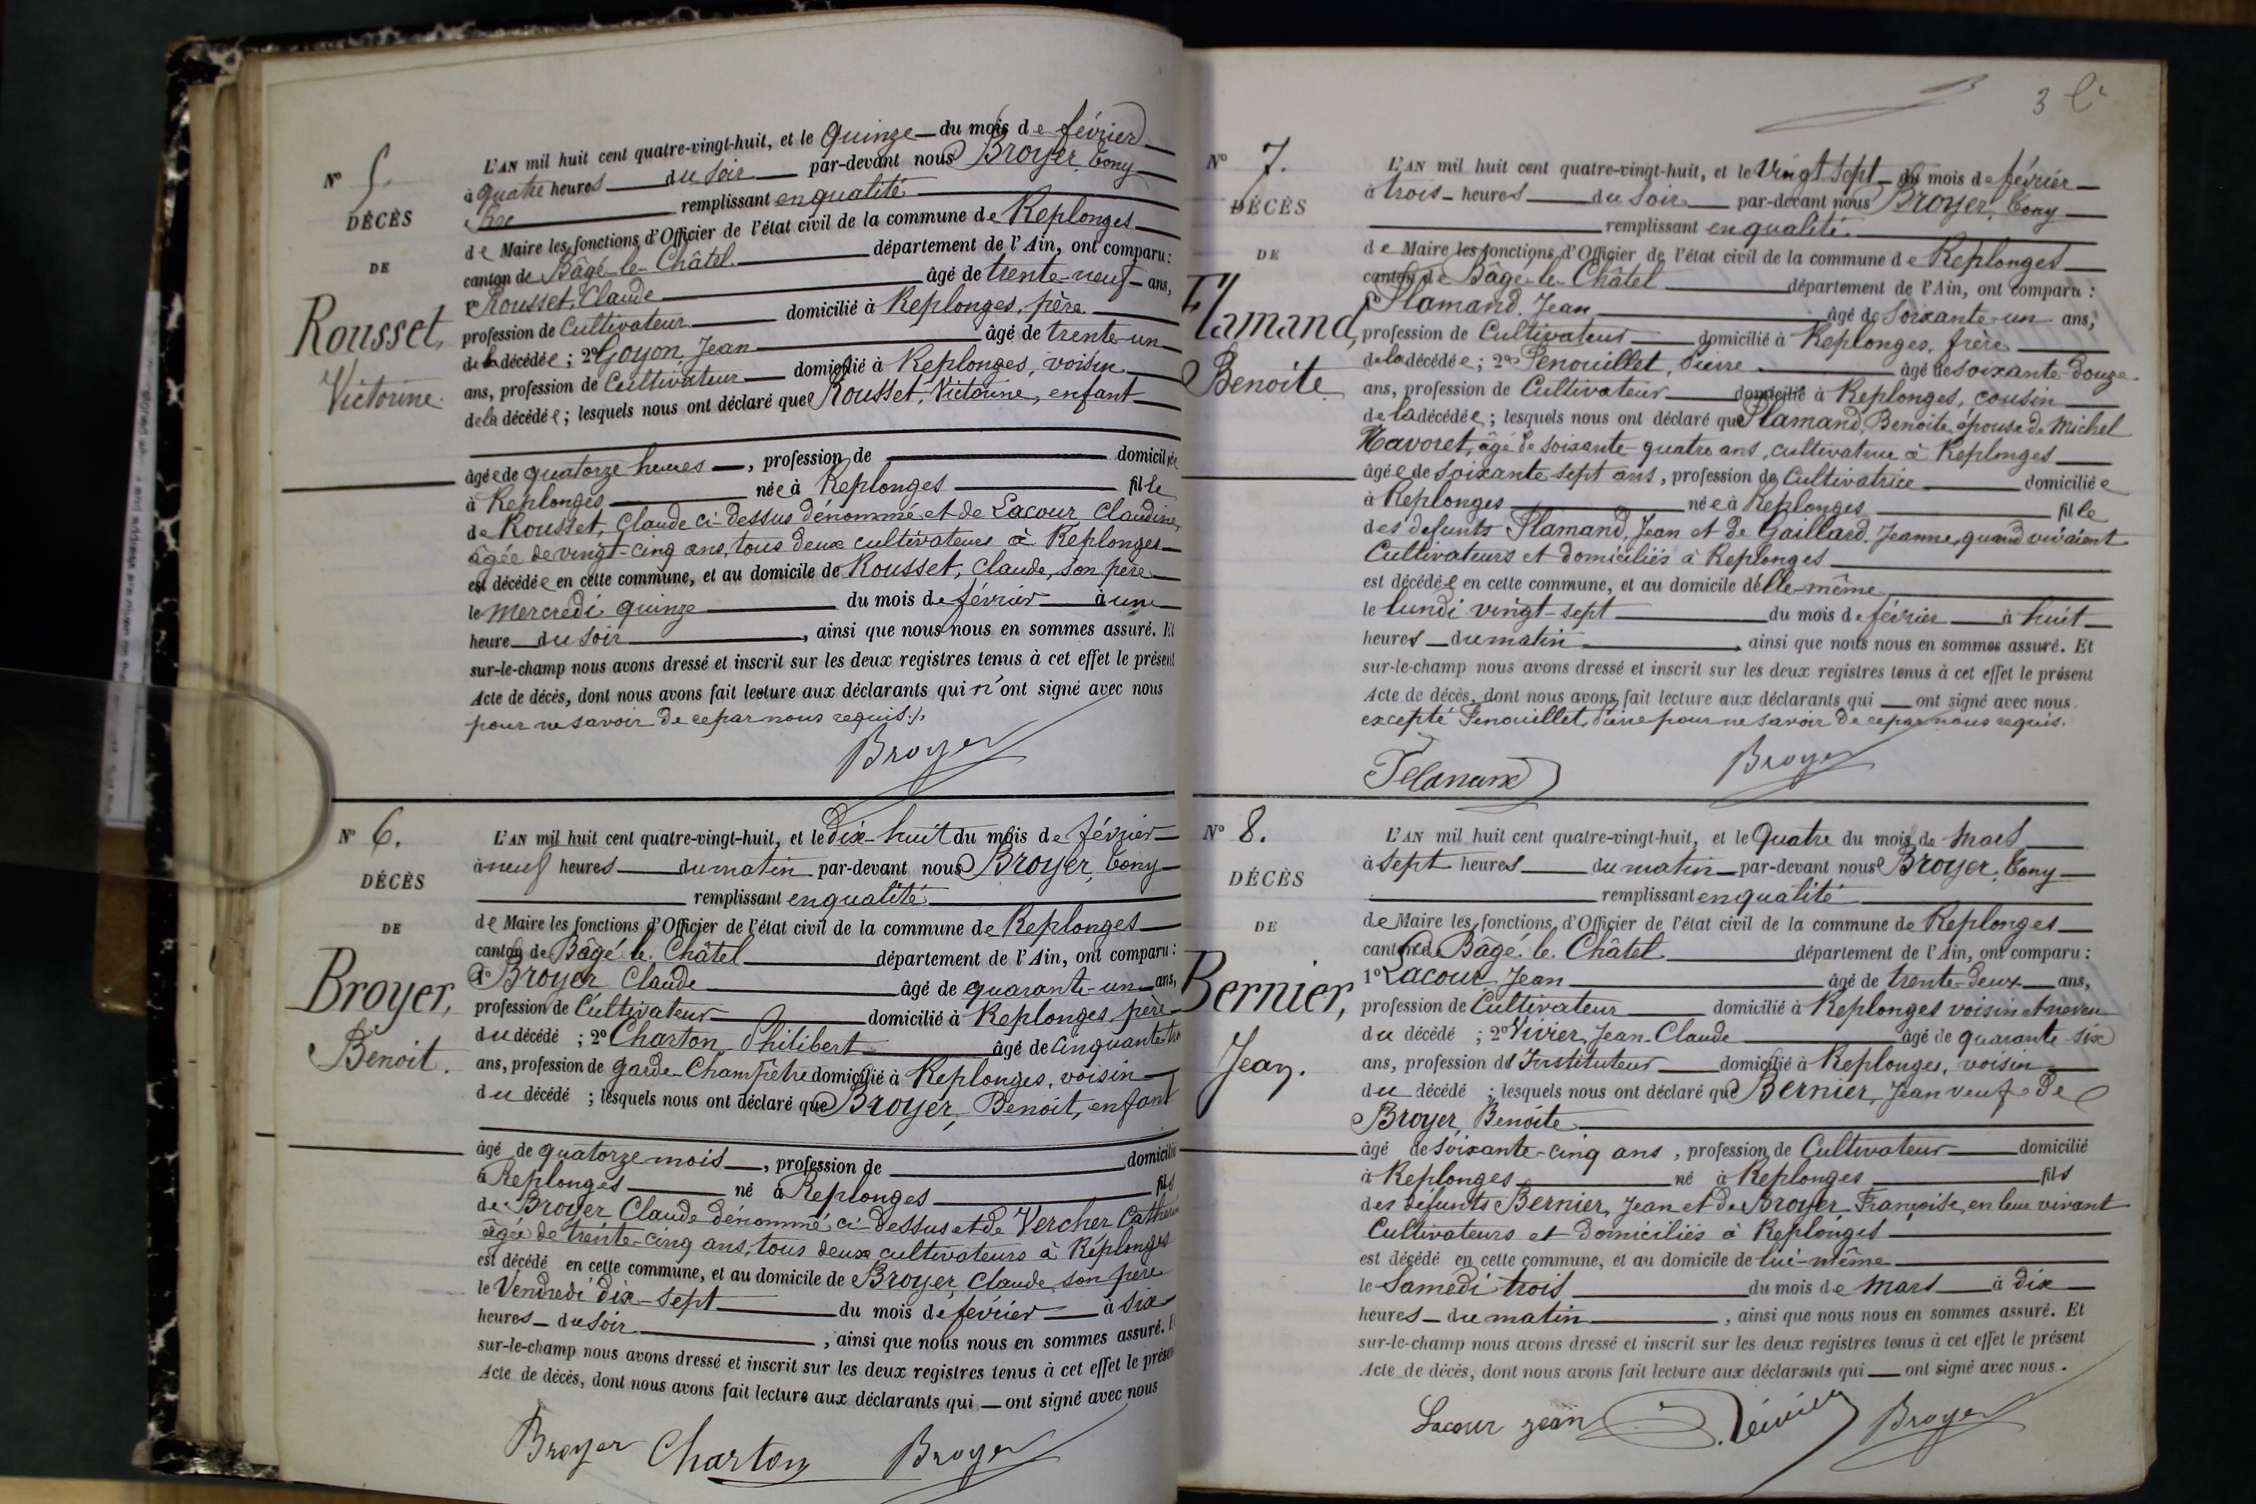 N° 5.
DÉCÈS
DE
Rousset,
Victorine.
L'AN mil huit cent quatre-vingt-huit, et le quinze du mois de février
à quatre heures du soir par-devant nous Broyer, Tony
remplissant en qualité
de Maire les fonctions d'Officier de l'état civil de la commune de Replonges
canton de Bâgé-le-Châtel département de l'Ain, ont comparu :
1° Rousset, Claude âgé de trente-neuf ans,
profession de Cultivateur domicilié à Replonges, père
de la décédée ; 2° Goyon, Jean âgé de trente-un
ans, profession de Cultivateur domicilié à Replonges, voisin
de la décédée ; lesquels nous ont déclaré que Rousset, Victorine, enfant
âgée de quatorze heures, profession de domiciliée
à Replonges née à Replonges fille
de Rousset, Claude ci-dessus dénommé et de Lacour, Claudine,
âgée de vingt-cinq ans, tous deux cultivateurs à Replonges
est décédée en cette commune, et au domicile de Rousset, Claude, son père
le mercredi quinze du mois de février à une
heure du soir, ainsi que nous nous en sommes assuré. Et
sur-le-champ nous avons dressé et inscrit sur les deux registres tenus à cet effet le présent
Acte de décès, dont nous avons fait lecture aux déclarants qui n'ont signé avec nous
pour ne savoir de ce par nous requis./.
Broyer
N° 6.
DÉCÈS
DE
Broyer,
Benoit.
L'AN mil huit cent quatre-vingt-huit, et le dix-huit du mois de février
à neuf heures du matin par-devant nous Broyer, Tony
remplissant en qualité
de Maire les fonctions d'Officier de l'état civil de la commune de Replonges
canton de Bâgé-le-Châtel département de l'Ain, ont comparu :
1° Broyer Claude âgé de quarante-un ans,
profession de Cultivateur domicilié à Replonges, père
du décédé ; 2° Charton Philibert âgé de cinquante-trois
ans, profession de garde-Champêtre domicilié à Replonges, voisin
du décédé ; lesquels nous ont déclaré que Broyer, Benoit, enfant
âgé de quatorze mois, profession de domicilié
à Replonges né à Replonges fils
de Broyer Claude dénommé ci-dessus et de Vercher Catherine
âgée de trente-cinq ans, tous deux cultivateurs à Replonges
est décédé en cette commune, et au domicile de Broyer, Claude, son père
le Vendredi dix-sept du mois de février à six
heures du soir, ainsi que nous nous en sommes assuré. Et
sur-le-champ nous avons dressé et inscrit sur les deux registres tenus à cet effet le présent
Acte de décès, dont nous avons fait lecture aux déclarants qui — ont signé avec nous
Broyer Charton Broyer
3
N° 7.
DÉCÈS
DE
Flamand,
Benoite
L'AN mil huit cent quatre-vingt-huit, et le vingt sept du mois de février
à trois heures du soir par-devant nous Broyer, Tony
remplissant en qualité
de Maire les fonctions d'Officier de l'état civil de la commune de Replonges
canton de Bâgé-le-Châtel département de l'Ain, ont comparu :
Flamand, Jean âgé de soixante-un ans,
profession de Cultivateur domicilié à Replonges, frère
de la décédée ; 2° Fenouillet, Pierre âgé de soixante-douze
ans, profession de Cultivateur domicilié à Replonges, cousin
de la décédée ; lesquels nous ont déclaré que Flamand, Benoite, épouse de Michel
Navoret, âgé de soixante-quatre ans, cultivateur à Replonges
âgée de soixante sept ans, profession de Cultivatrice domiciliée
à Replonges née à Replonges fille
des défunts Flamand, Jean et de Gaillard, Jeanne, quand vivaient
Cultivateurs et domiciliés à Replonges
est décédée en cette commune, et au domicile d'elle-même
le lundi vingt-sept du mois de février à huit
heures du matin, ainsi que nous nous en sommes assuré. Et
sur-le-champ nous avons dressé et inscrit sur les deux registres tenus à cet effet le présent
Acte de décès, dont nous avons fait lecture aux déclarants qui — ont signé avec nous
excepté Fenouillet, Pierre pour ne savoir de ce par nous requis.
Flamand Broyer
N° 8.
DÉCÈS
DE
Bernier,
Jean.
L'AN mil huit cent quatre-vingt-huit, et le Quatre du mois de Mars
à sept heures du matin par-devant nous Broyer, Tony
remplissant en qualité
de Maire les fonctions d'Officier de l'état civil de la commune de Replonges
canton de Bâgé-le-Châtel département de l'Ain, ont comparu :
1° Lacour Jean âgé de trente-deux ans,
profession de Cultivateur domicilié à Replonges voisin et neveu
du décédé ; 2° Vivier, Jean-Claude âgé de quarante-six
ans, profession d'Instituteur domicilié à Replonges, voisin
du décédé ; lesquels nous ont déclaré que Bernier, Jean veuf de
Broyer, Benoite
âgé de soixante-cinq ans, profession de Cultivateur domicilié
à Replonges né à Replonges fils
des défunts Bernier, Jean et de Broyer Françoise, en leur vivant
Cultivateurs et domiciliés à Replonges
est décédé en cette commune, et au domicile de lui-même
le Samedi trois du mois de Mars à dix
heures du matin, ainsi que nous nous en sommes assuré. Et
sur-le-champ nous avons dressé et inscrit sur les deux registres tenus à cet effet le présent
Acte de décès, dont nous avons fait lecture aux déclarants qui — ont signé avec nous.
Lacour jean J. Vivier Broyer